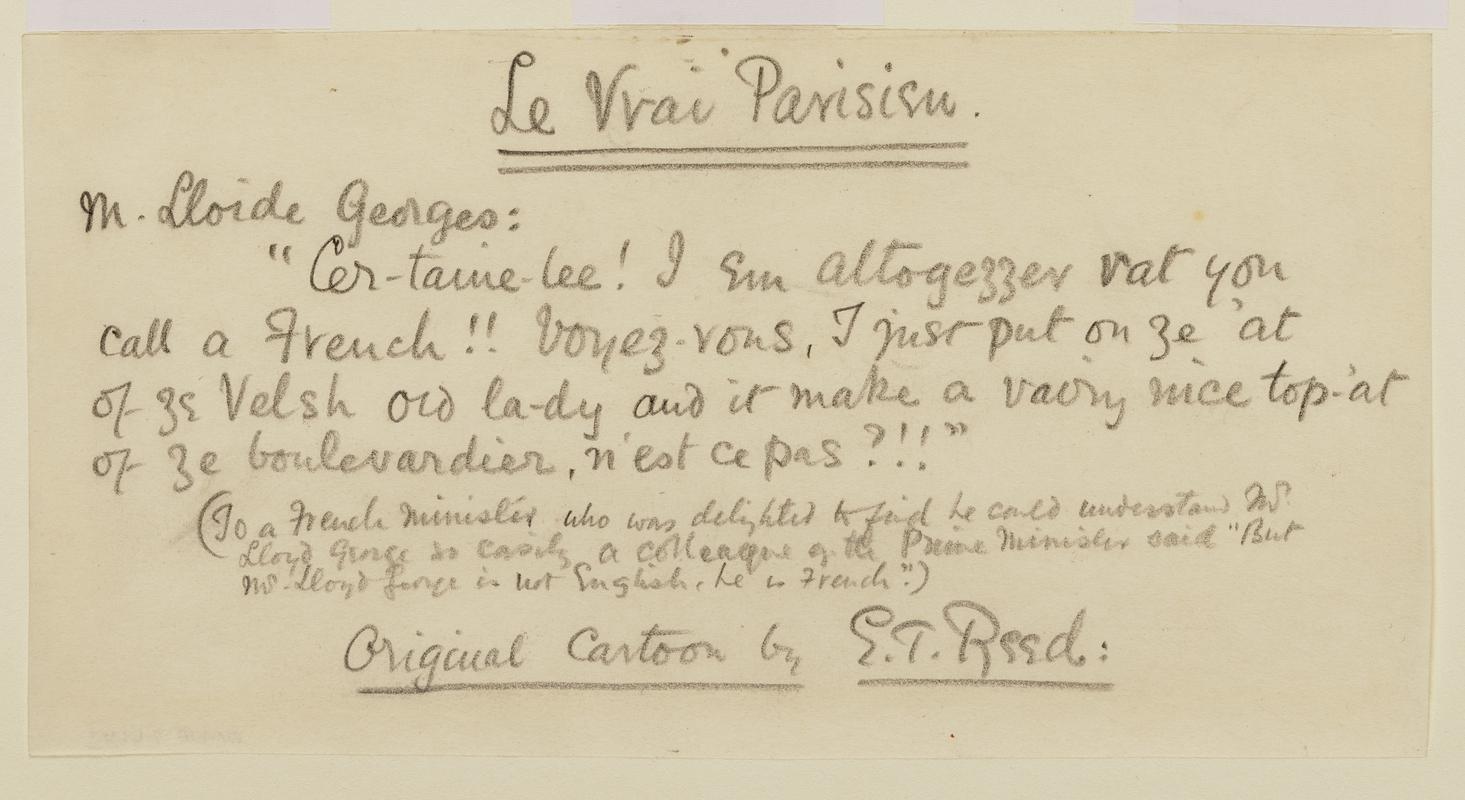 Le Vrai Parisien.
M. Lloide Georges:
"Cer-taine-lee! I em altogezzer vat you
call a French!! Voyez-vous, I just put on ze 'at
of ze Velsh old la-dy and it make a vairy nice top-'at
of ze boulevardier, n'est ce pas?!!"
(To a French Minister who was delighted to find he could understand Mr.
Lloyd George so easily a colleague of the Prime Minister said "But
Mr. Lloyd George is not English. he is French".)
Original Cartoon by E.T. Reed: